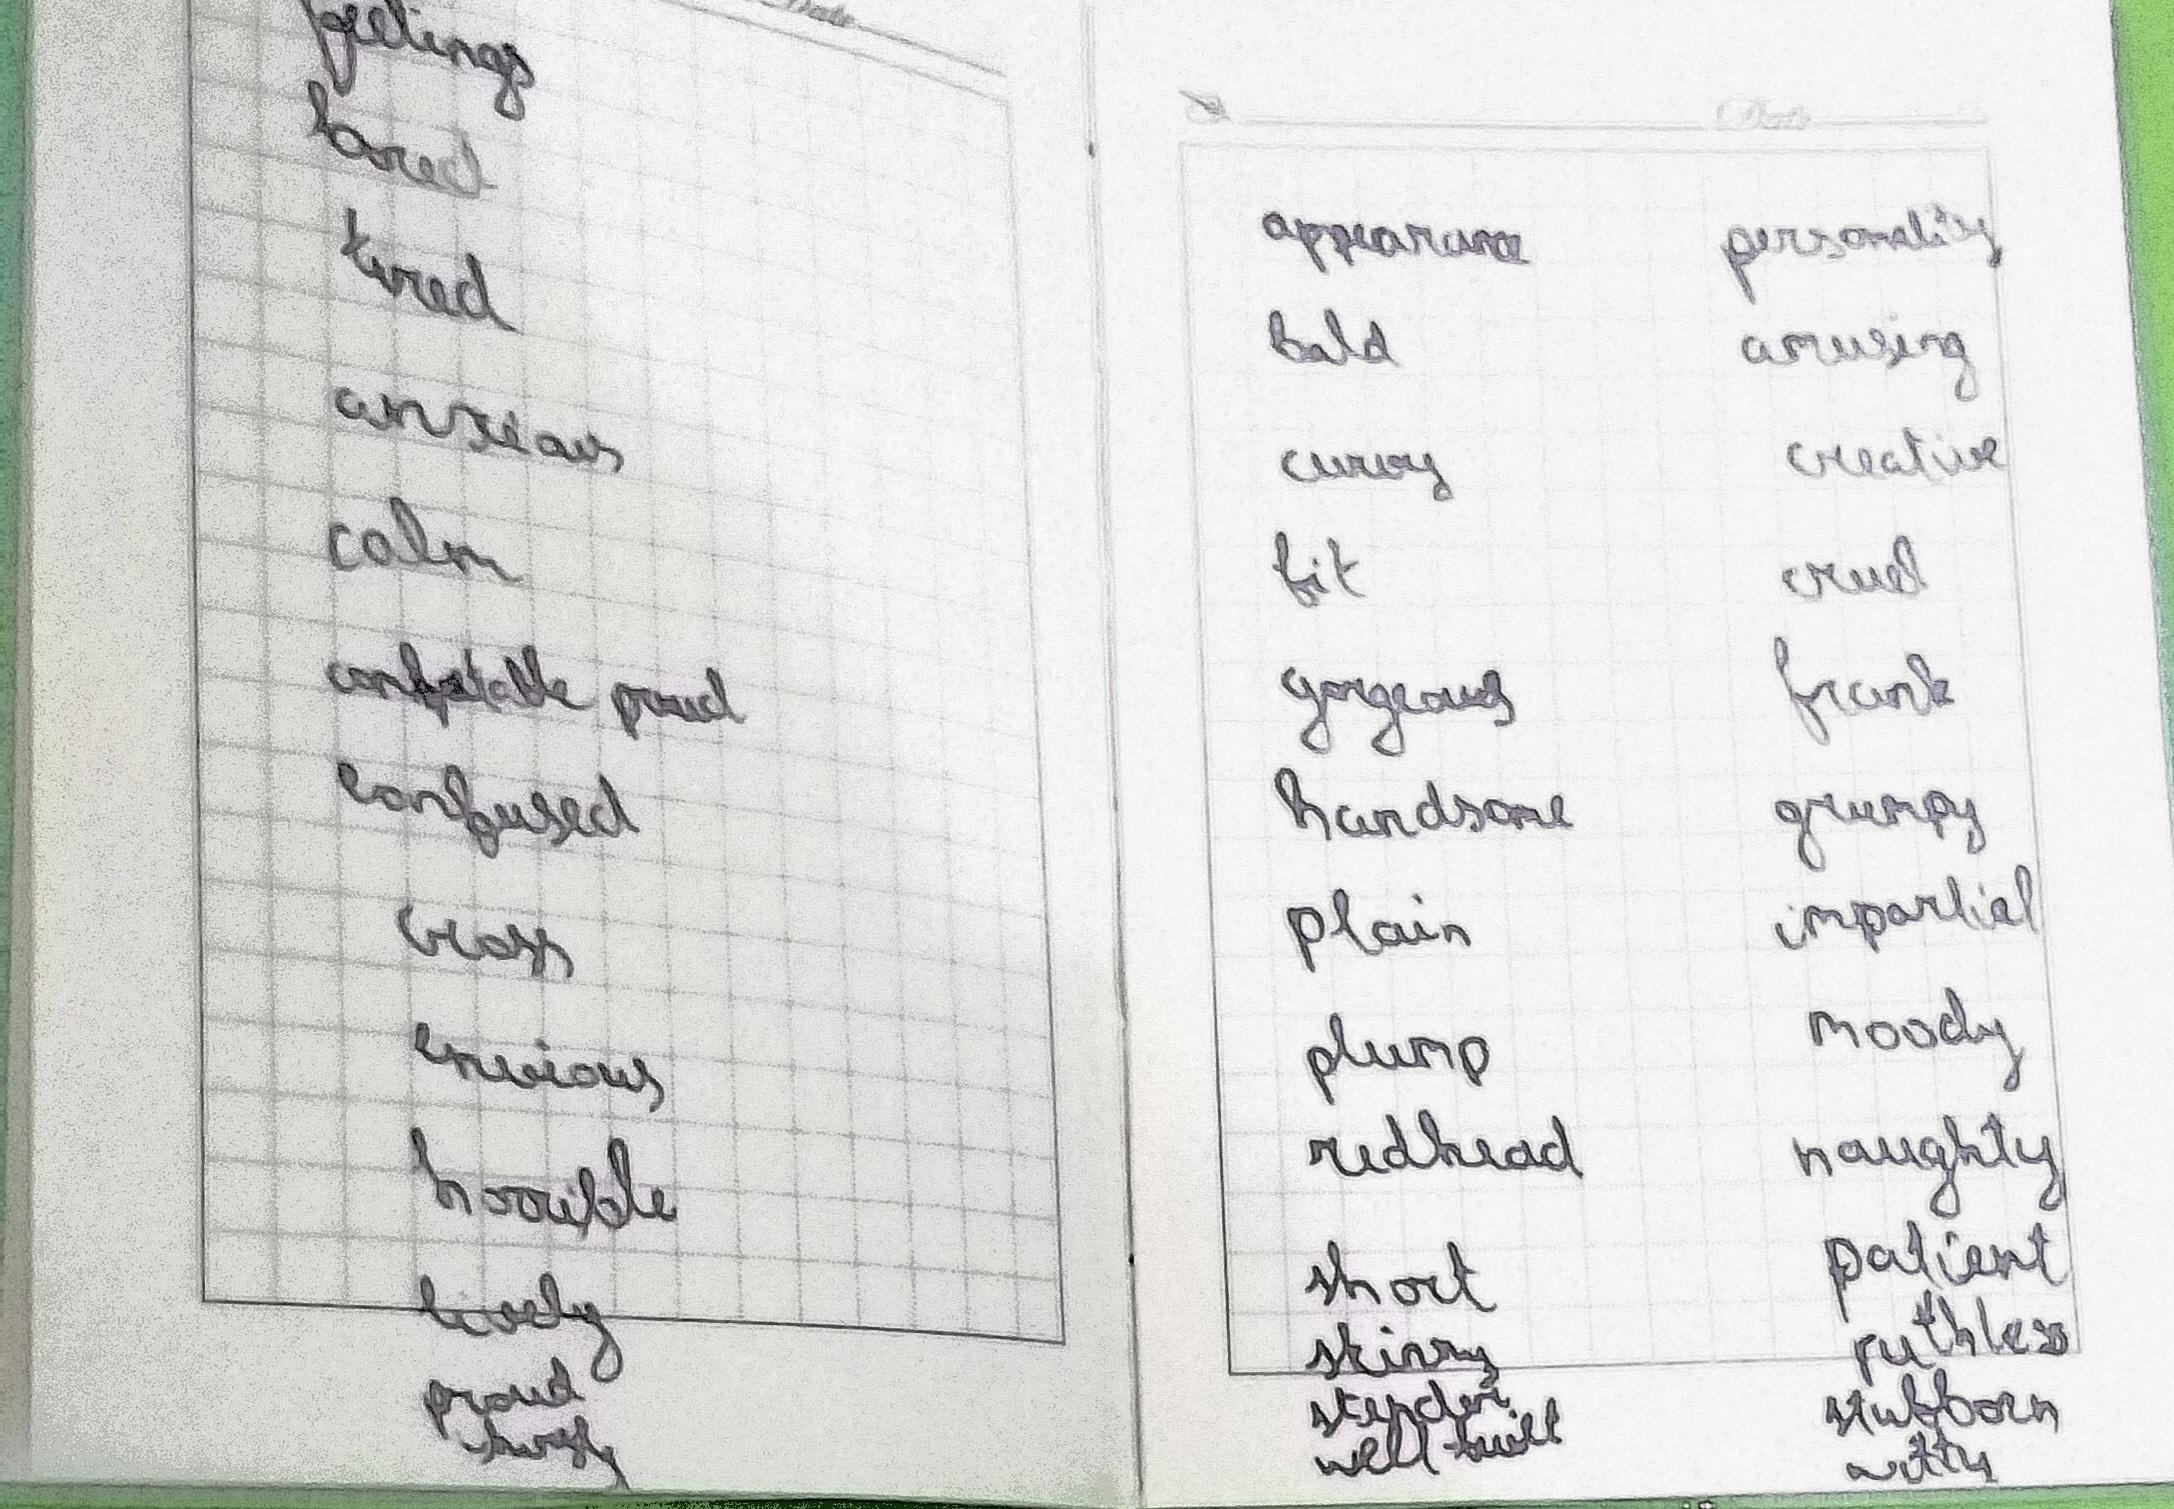 Date
feelings
bored
tired
anxious
calm
comfotable proud
confused
cross
envious
horrible
lively
proud
Date
appearance personality
bald amusing
curvy creative
fit cruel
gorgeous frank
handsome grumpy
plain impartial
plump moody
redhead naughty
short patient
skinny ruthless
slender stubborn
well-built witty